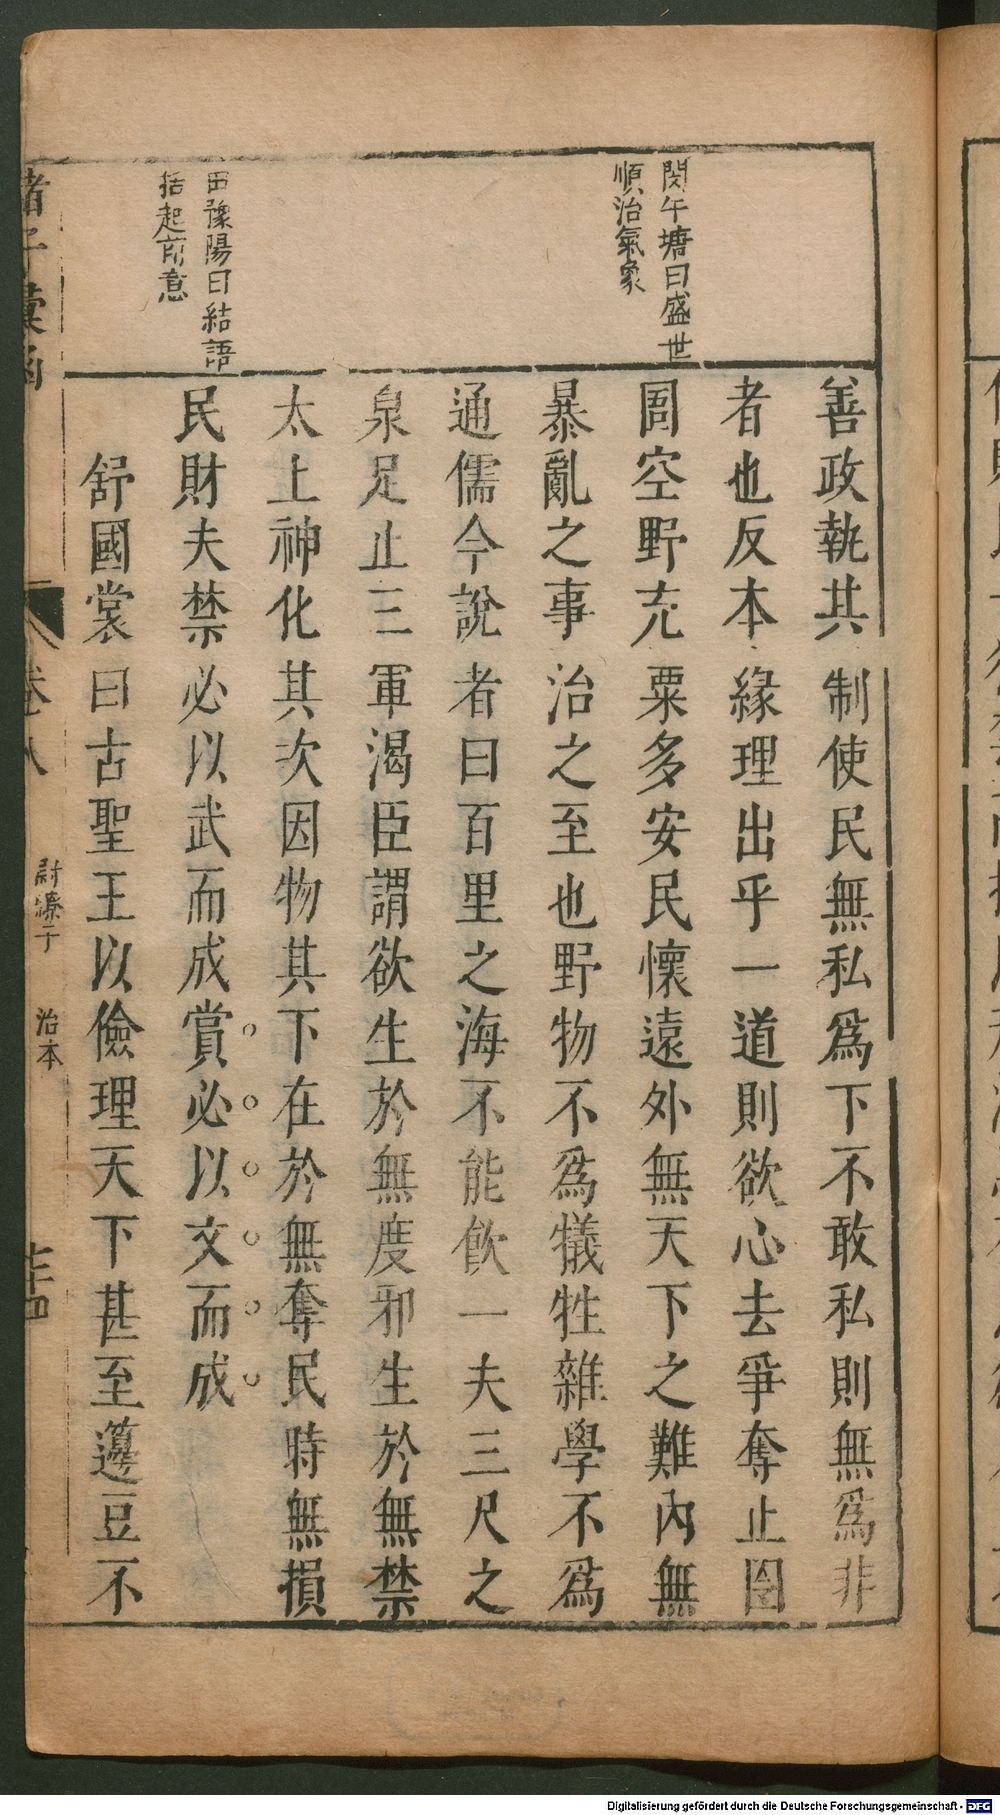 閔午塘曰盛世
順治氣象
田豫陽曰結語
括起前意
善政執其制使民無私爲下不敢私則無爲非
者也反本緣理出乎一道則欲心去爭奪止囹
圄空野充粟多安民懷遠外無天下之難內無
暴亂之事治之至也野物不爲犧牲雜學不爲
通儒今說者曰百里之海不能飮一夫三尺之
泉足止三軍渴臣謂欲生於無度邪生於無禁
太上神化其次因物其下在於無奪民時無損
民財夫禁必以武而成賞必以文而成
舒國裳曰古聖王以儉理天下甚至籩豆不
諸子彙函
卷八
尉繚子
治本
七十四
Digitalisierung gefördert durch die Deutsche Forschungsgemeinschaft - DFG